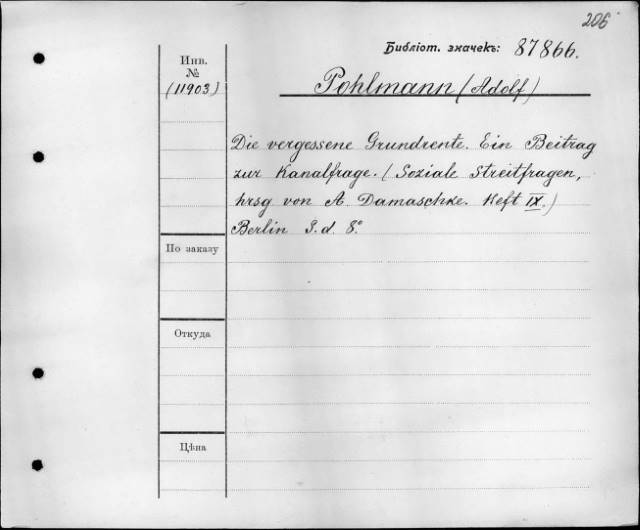 206
Библіот. значекъ: 87866.
Инв.
№
(11903)
Pohlmann (Adolf)
Die vergessene Grundrente. Ein Beitrag
zur Kanalfrage. (Soziale Streitfragen,
hrsg von A. Damaschke. Heft IX.)
Berlin S. d. 8°
По заказу
Откуда
Цѣна